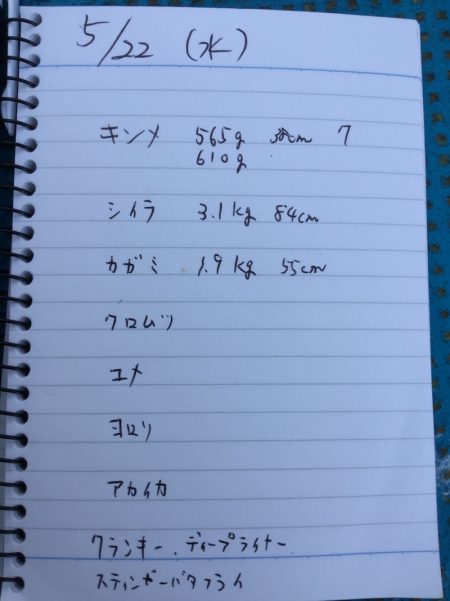 5/22 (水)
キンメ 565g 38cm 7
610g
シイラ 3.1kg 84cm
カガミ 1.9kg 55cm
クロムツ
ユメ
ヨロリ
アカイカ
クランキー、ディープライナー
スティンガーバタフライ